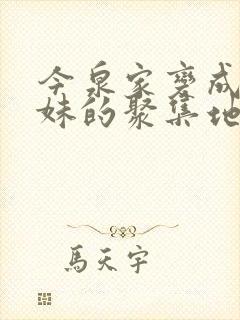 今泉家变成
妹的聚集地
馬天宇